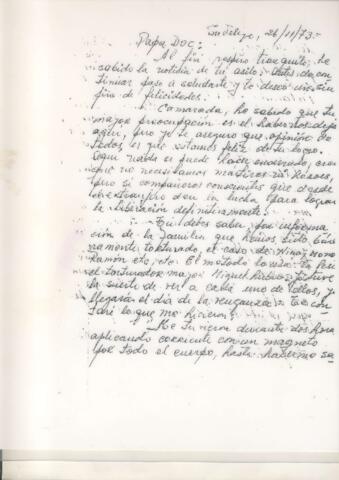 26/11/73.-
Papa Doc:
Al fin respiro tranquilo, he
sabido la noticia de tu asilo,
saludarte y te deseo un sin
fin de felicidades.
Camarada, he sabido que tu
mayor preocupación es el habernos deja
pero yo te aseguro que opinión de
todos, es que estamos feliz de
se puede hacer encerrado,
que no necesitamos mártires ni héroes,
pero si compañeros conscientes que desde
el extranjero den la lucha para lograr
la liberación definitivamente.
Tú debes saber por informa
ción de la familia que hemos sido
mente torturado, el caso de Nino, Nono
Ramón etc, etc. El método
el torturador mayor Miguel
la suerte de ver a cada uno de ellos, y
llegará el día de la venganza. Te con
taré lo que me hicieron
Me tuvieron durante dos horas
aplicando corriente con un magneto
por todo el cuerpo, hasta haberme sa